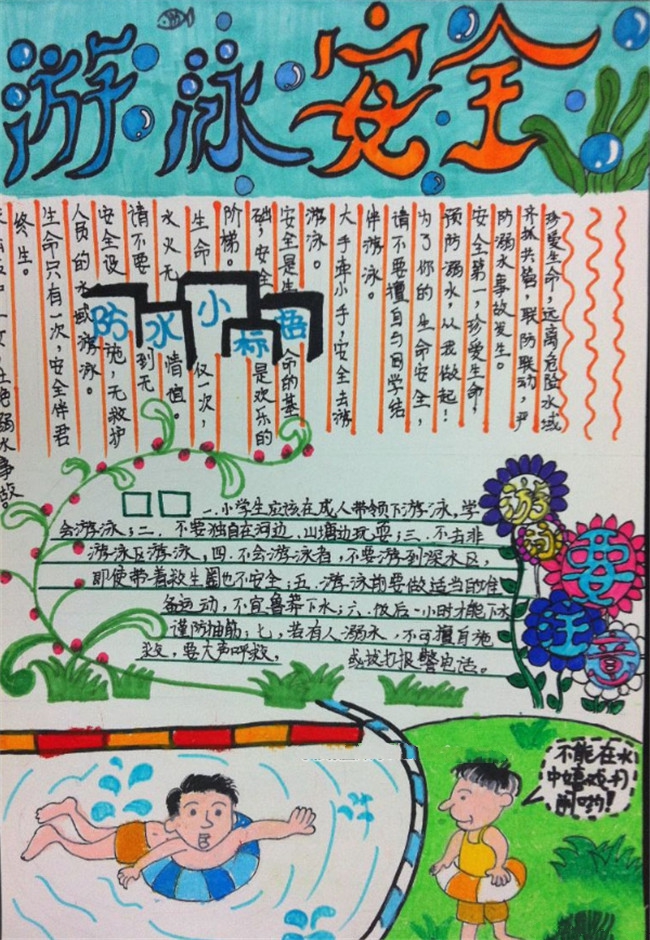 游泳安全
珍爱生命，远离危险水域
齐抓共管，联防联动，严
防溺水事故发生。
安全第一，珍爱生命！
预防溺水，从我做起！
为了你的生命安全，
请不要擅自与同学结
伴游泳。
大手牵小手，安全去游
游泳。
安全是生命的基
础，安全是欢乐的
阶梯。
生命仅一次，
水火无情值。
请不要到无
安全设施，无救护
人员的水域游泳。
生命只有一次，安全伴君
终生。
杜绝溺水事故。
防水小标语
一.小学生应该在成人带领下游泳，学
会游泳；二.不要独自在河边、山塘边玩耍；三.不去非
游泳区游泳，四.不会游泳者，不要游到深水区，
即使带着救生圈也不安全；五.游泳前要做适当的准
备运动，不宜鲁莽下水；六.饭后一小时才能下水
谨防抽筋；七，若有人溺水，不可擅自施
救，要大声呼救，或拨打报警电话。
游
要
注
意
不能在水
中嬉戏打
闹哟！